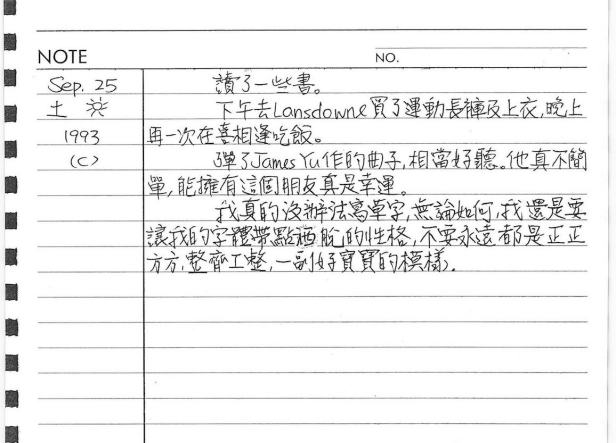 NOTE
NO.
Sep. 25
土 ☼
1993
(C)
讀了一些書。
下午去Lansdowne買了運動長褲及上衣,晚上
再一次在喜相逢吃飯。
彈了James Yu作的曲子,相當好聽。他真不簡
單,能擁有這個朋友真是幸運。
我真的沒辦法寫草字,無論如何,我還是要
讓我的字體帶點灑脫的性格,不要永遠都是正正
方方,整齊工整,一副好寶寶的模樣.